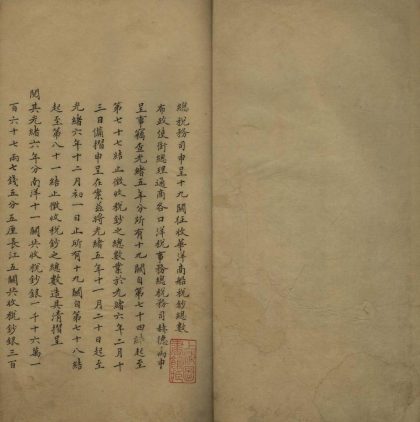 總稅務司申呈十九關征收華洋商船稅鈔總數
布政使銜總理通商各口洋稅事務總稅務司赫德為申
呈事竊查光緒五年分所有十九關自第七十四結起至
第七十七結止徵收稅鈔之總數業於光緒六年二月十
三日備摺申呈在案茲將光緒五年十一月二十日起至
光緒六年十二月初一日止所有十九關自第七十八結
起至第八十一結止徵收稅鈔之總數造具清摺呈
閱其光緒六年分南洋十一關共收稅鈔銀一千十六萬一
百六十七兩七錢五分五厘長江五關共收稅鈔銀三百